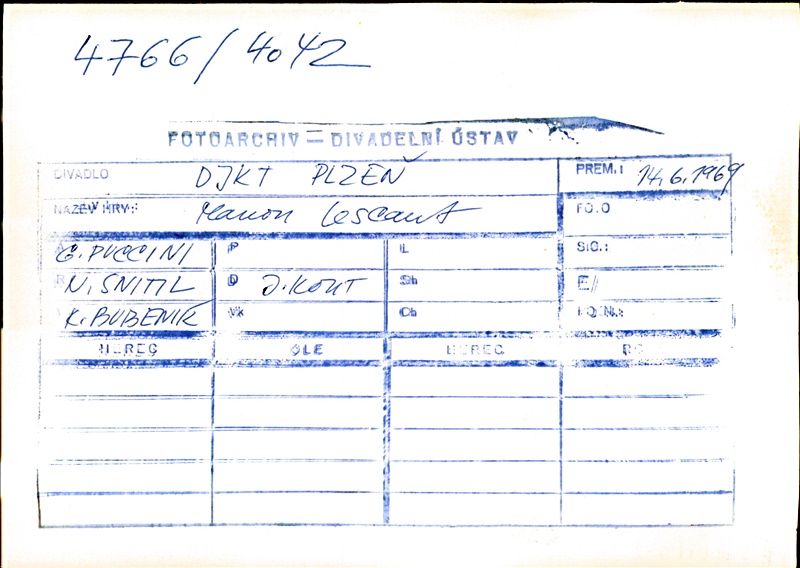 4766/4042
FOTOARCHIV — DIVADELNÍ ÚSTAV
DIVADLO DJKT PLZEŇ PREM.: 14.6.1969
NÁZEV HRY: Manon Lescaut FOTO
G. PUCCINI P L SIG.:
N. SNITIL D J. KOUT Sb
K. BUBENÍK Vk Ch
HEREC ROLE HEREC